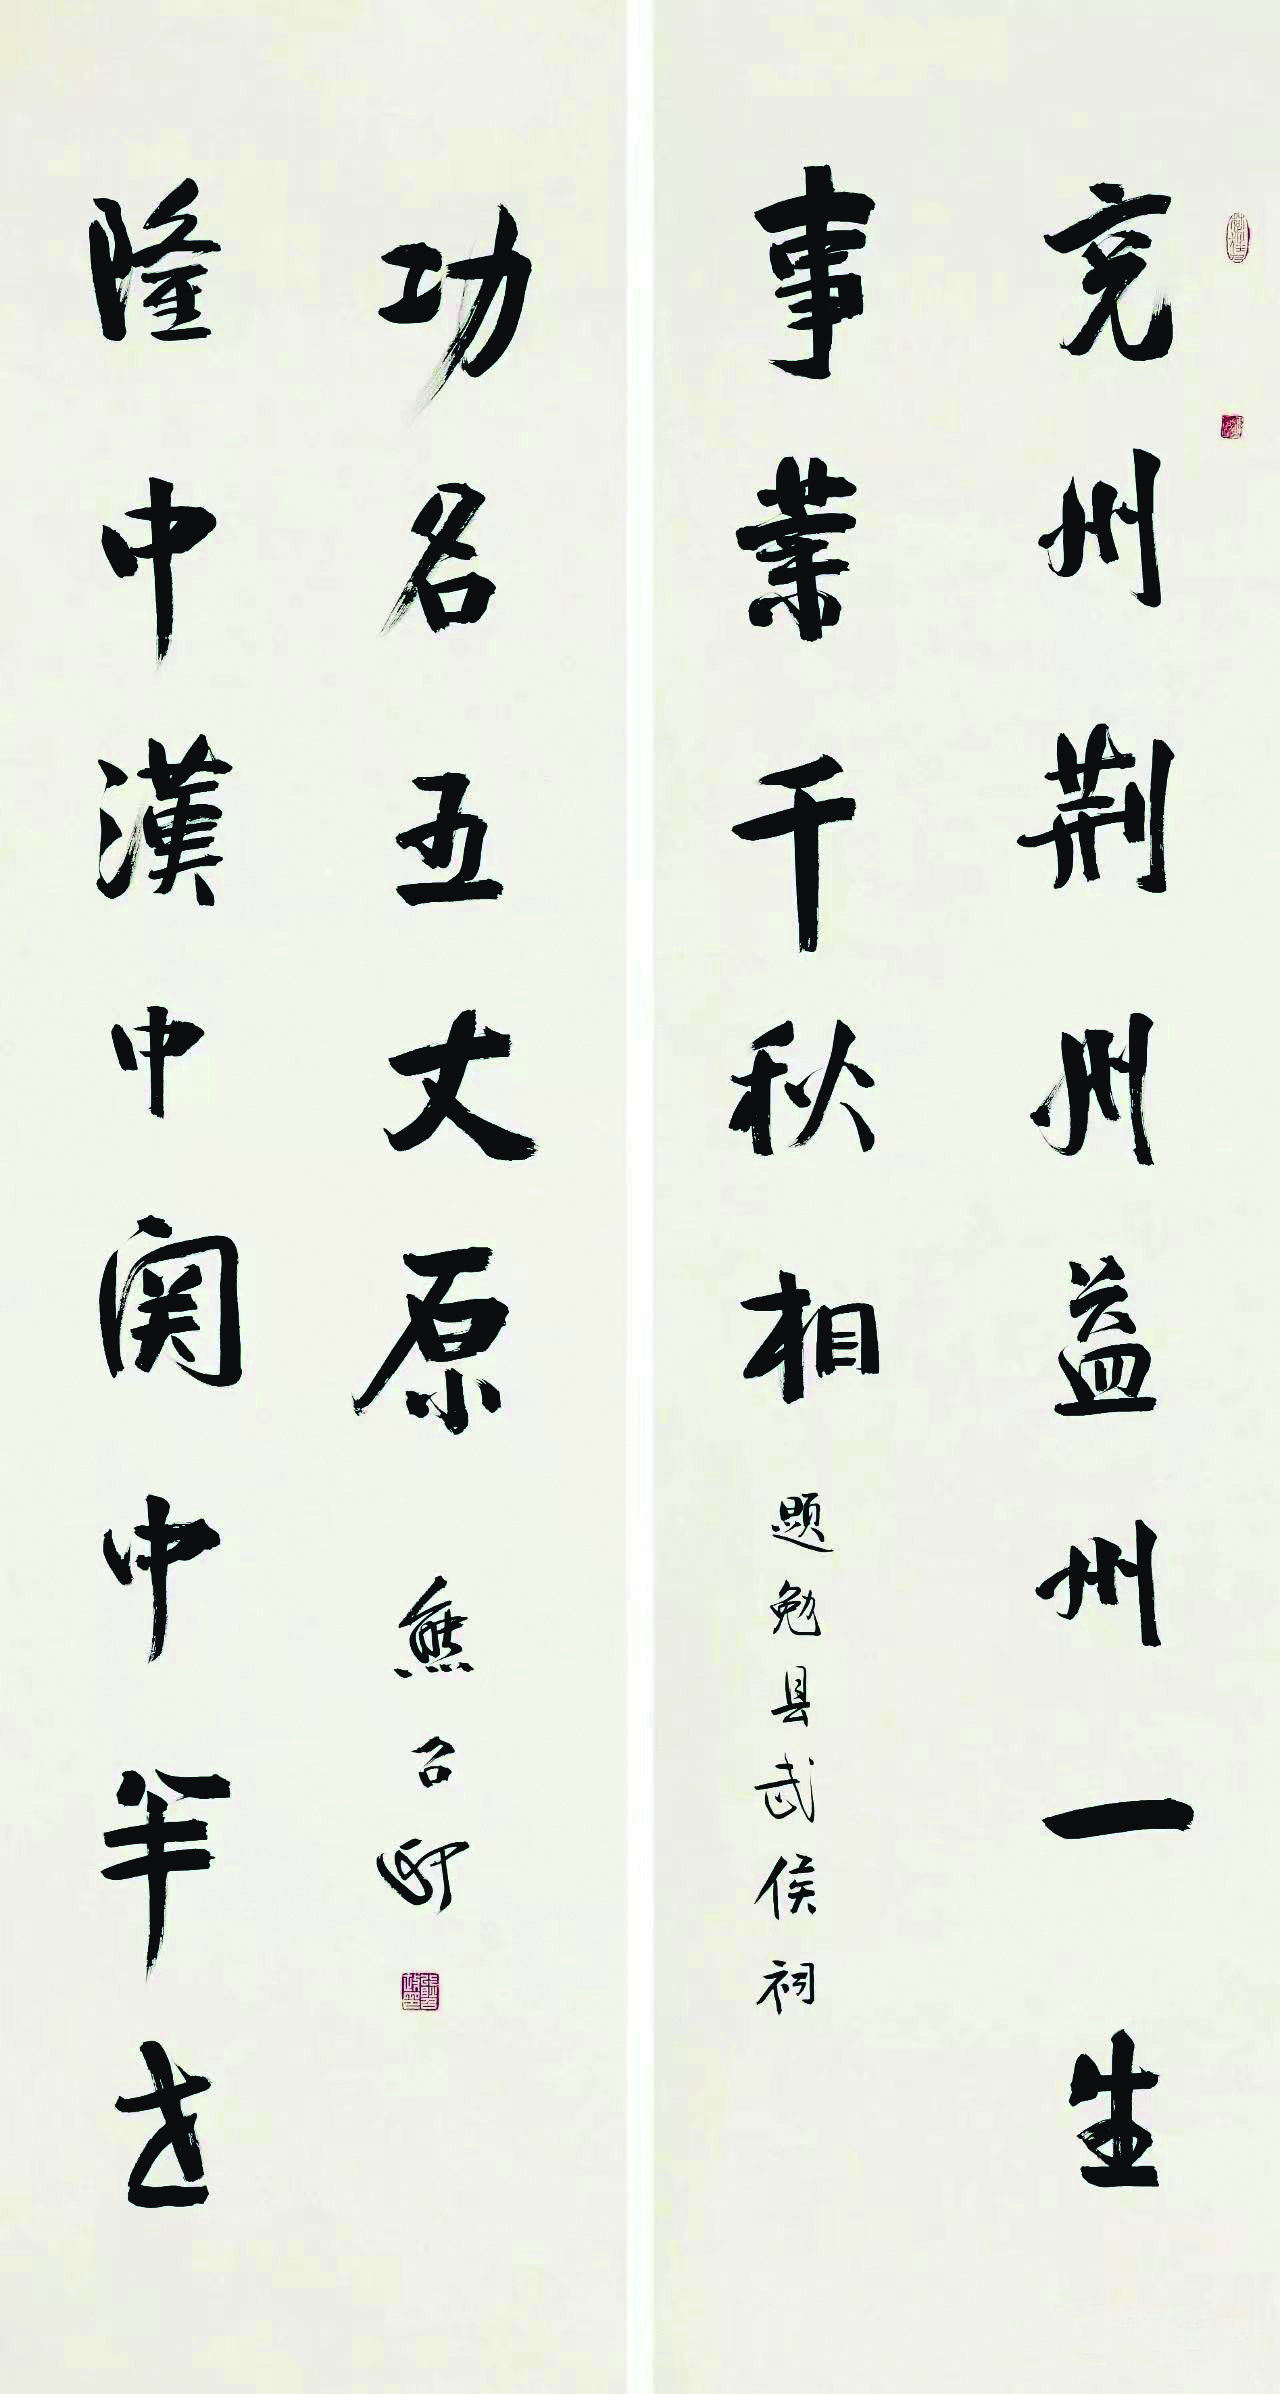 兖州荆州益州一生
事業千秋相
題勉县武侯祠
隆中漢中関中半世
功名五丈原
熊召政